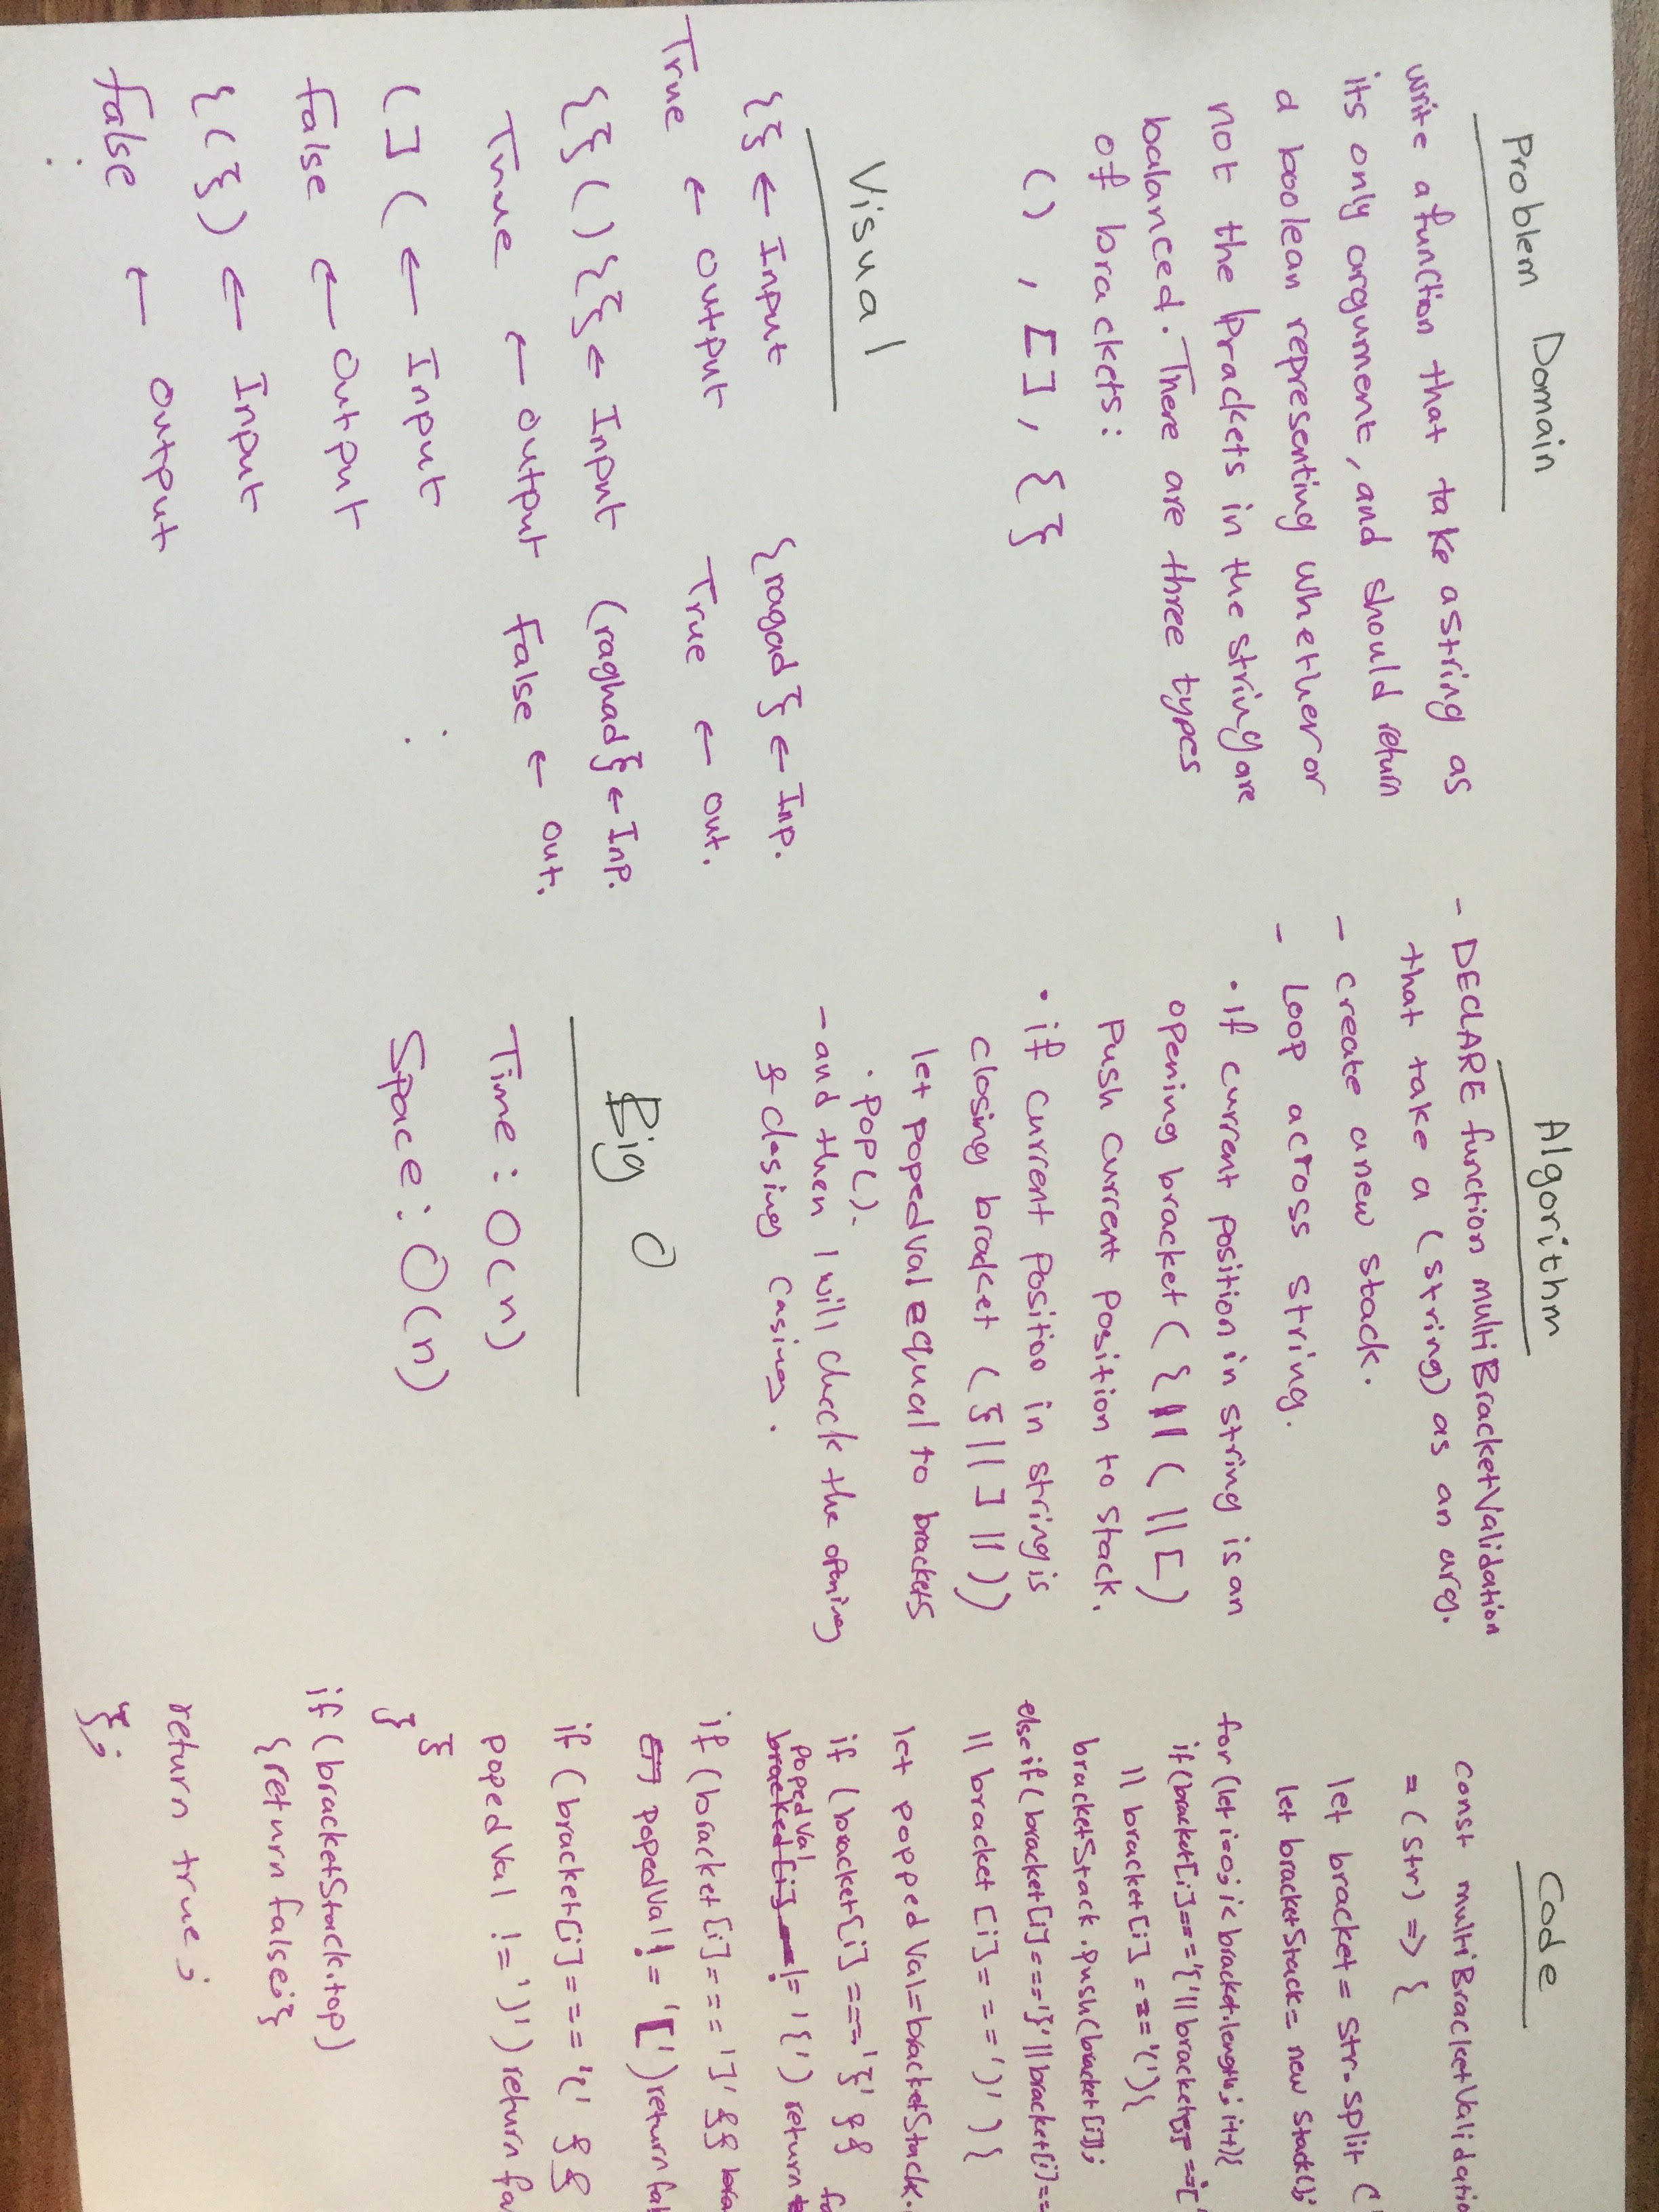 Problem Domain
write a function that take a string as
its only argument, and should return
a boolean representing whether or
not the brackets in the string are
balanced. There are three types
of brackets:
() , [] , {}
Visual
{} ← Input
True ← output
{}(){} ← Input
True ← output
(]( ← Input
false ← output
{(}) ← Input
false ← output
:
{ragad} ← Inp.
True ← out.
(raghad} ← Inp.
false ← out.
:
Algorithm
- DECLARE function multiBracketValidation
that take a (string) as an arg.
- create a new stack.
- Loop across string.
• If current position in string is an
opening bracket ( { || ( || [ )
push current position to stack.
• if current positioo in string is
closing bracket ( } || ] || ) )
let popedVal equal to brackets
. pop().
- and then I will check the opening
& closing casing.
Big O
Time : O(n)
Space : O(n)
Code
const multiBracketValidatio
= (str) => {
let bracket = str.split ('
let bracketStack = new stack();
for (let i=0; i< bracket.length; i++){
if(bracket[i]==='{'|| bracket[i]==='['
|| bracket[i] === '('){
bracketStack.push(bracket[i]);
else if (bracket[i]==='}'||bracket[i]==
|| bracket [i] === ')' ) {
let poppedVal=bracketStack.
if (bracket[i] ==='}' &&
popedVal != '{') return fa
if (bracket[i] === ']' && bra
popedVal != '[') return fal
if (bracket[i] === '(' &&
popedVal != ')') return fa
}
}
if (bracketStack.top)
{return false;}
return true;
};